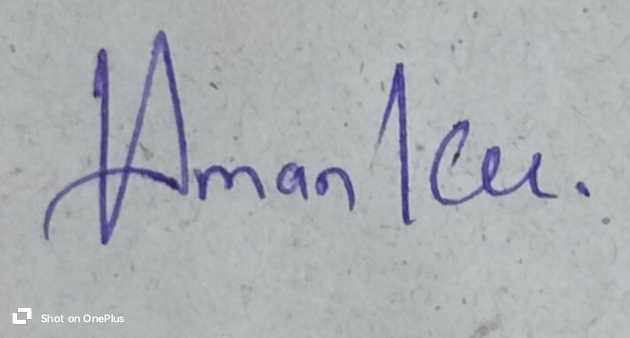 Aman Ku.
Shot on OnePlus